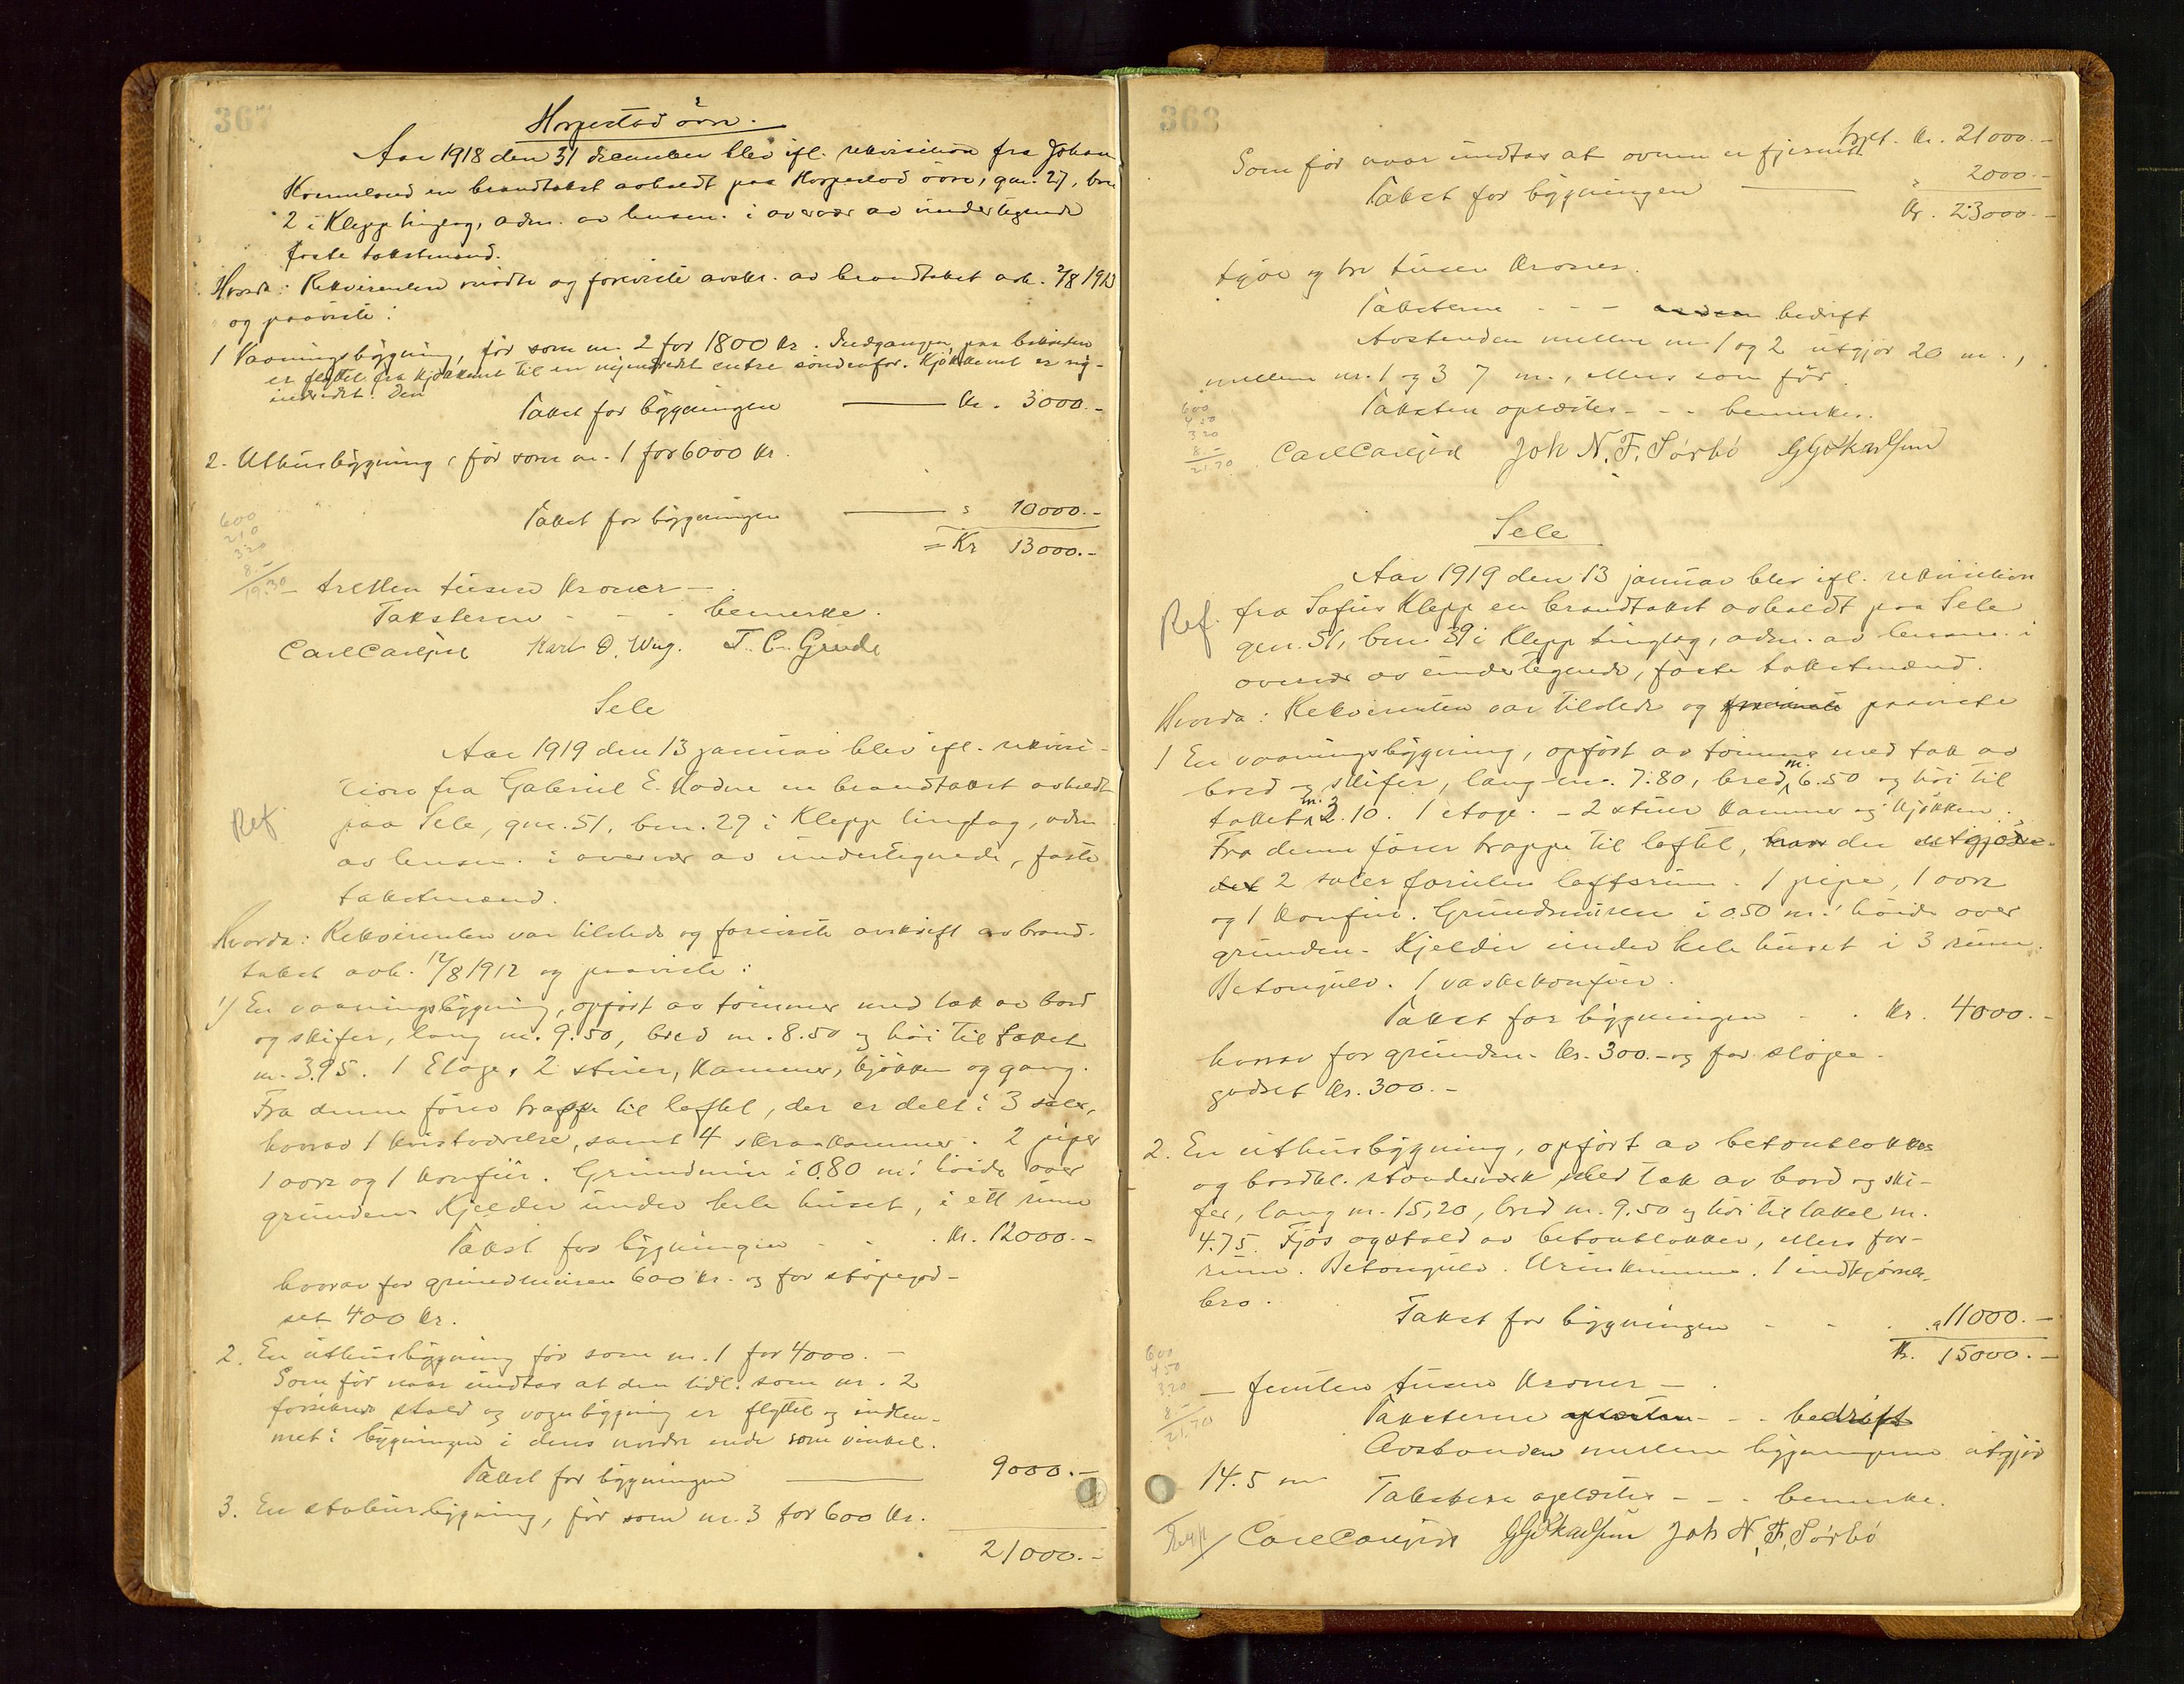 367
Horpestad övre.
Aar 1918 den 31 december blev ifl. rekvisition fra Johan
en brandtakst avholdt paa Horpestad övre, gnr. 27, bnr
2 i Klepp tinglag, adm. av lensm. i overvær av undertegnede
faste takstmænd.
Hvorda: Rekvirenten mödte og foreviste avskr. av brandtakst avh. 2/8 1912
og paaviste:
1 Vaaningsbygning, för som nr. 2 for 1800 kr. Indgangen paa
er flyttet fra kjökkenet til en nyindredet entre söndenfor. Kjökkenet er ny-
indredet. Den
Takst for bygningen — kr. 3000.-
2. Uthusbygning, för som nr. 1 for 6000 kr.
Takst for bygningen — " 10000.-
= Kr 13000.-
600
210
3.20
8.-
19.30
- tretten tusen kroner -
Taksterne - - - bemerke.
Carl Carlsen Karl O. Wiig. T. C. Grude
Sele
Aar 1919 den 13 januar blev ifl. rekvisi-
tion fra Gabriel E. Hodne en brandtakst avholdt
Ref.
paa Sele, gnr. 51, bnr. 29 i Klepp tinglag, adm.
av lensm. i overvær av undertegnede, faste
takstmænd.
Hvorda: Rekvirenten var tilstede og foreviste avskrift av brand-
takst avh. 12/8 1912 og paaviste:
1/ En vaaningsbygning, opfört av tömmer med tak av bord
og skifer, lang m. 9.50, bred m. 8.50 og höi til taket
m. 3.95. 1 Etage, 2 stuer, kammer, kjökken og gang.
Fra denne förer trappe til loftet, der er delt i 3 saler,
hvorav 1 kvistværelse, samt 4 skraakammer. 2 piper
1 ovn og 1 komfür. Grundmur i 0.80 m's höide over
grunden. Kjelder under hele huset, i ett rum
Takst for bygningen - - . kr. 12000.-
hvorav for grundmuren 600 kr. og for stöpegod-
set 400 kr.
2. En uthusbygning för som nr. 1 for 4000.-
Som för naar undtas at den tidl. som nr. 2
forsikrede stald og vognbygning er flyttet og indlem-
met i bygningen i dens nordre ende som vinkel.
Takst for bygningen — 9000.-
3. En stabursbygning, för som nr. 3 for 600 kr.
21000.-
368
trspt. kr. 21000.-
Som för naar undtas at ovnen er fjernet
Takst for bygningen — " 2000.-
Kr. 23000.-
tyve og tre tusen kroner.
Taksterne - - - bedrift
Avstanden mellem nr. 1 og 2 utgjör 20 m.,
mellem nr. 1 og 3 7 m., ellers som för.
Taksten oplæstes - - - bemerke.
600
4.50
3.20
8.-
21.70
Carl Carlsen Joh N. F. Sörbö
Sele
Aar 1919 den 13 januar blev ifl. rekvisition
Ref.
fra Sofus Klepp en brandtakst avholdt paa Sele
gnr. 51, bnr. 39 i Klepp tinglag, adm. av lensm. i
overvær av undertegnede, faste takstmænd.
Hvorda: Rekvirenten var tilstede og foreviste paaviste
1 En vaaningsbygning, opfört av tömmer med tak av
bord og skifer, lang m. 7.80, bred m. 6.50 og höi til
taket m. 3.10. 1 etage. - 2 stuer kammer og kjökken.
Fra denne förer trappe til loftet, hvor der
det 2 saler foruten loftsrum. 1 pipe, 1 ovn
og 1 komfur. Grundmuren i 0.50 m's höide over
grunden. Kjelder under hele huset i 3 rum.
Betongulv. 1 vaskekomfur.
Takst for bygningen - . kr. 4000.-
hvorav for grunden kr. 300.- og for stöpe-
godset kr. 300.-
2. En uthusbygning, opfört av betonblokker
og bordkl. stenderværk med tak av bord og ski-
fer, lang m. 15.20, bred m. 9.50 og höi til taket m.
4.75. Fjös og stald av betonblokker, ellers for-
rum. Betongulv. Urinkumme. 1 indkjörsels-
bro.
Takst for bygningen - - . " 11000.-
Kr. 15000.-
600
4.50
3.20
8.-
21.70
- femten tusen kroner -
Taksterne oplæstes - - - bedrift
Avstanden mellem bygningerne utgjör
14.5 m
Taksterne oplæstes - - - bemerke.
Carl Carlsen Joh N. F. Sörbö